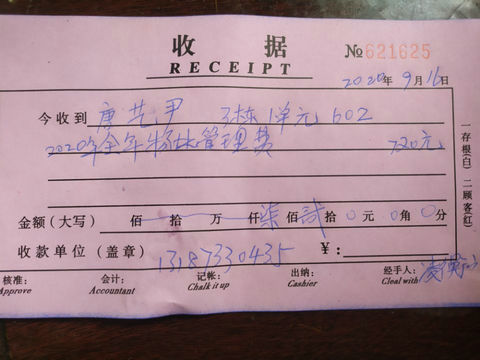 收 据 №621625
RECEIPT
2020年9月16日
今收到 唐艺尹 3栋1单元602
2020年全年物业管理费 720元
金额（大写） 佰 拾 万 仟柒佰贰拾0元0角0分
收款单位（盖章） 13187330435 ¥：
核准： 会计： 记帐： 出纳： 经手人：
Approve Accountant Chalk it up Cashier Cleal with
一存根(白) 二顾客(红)